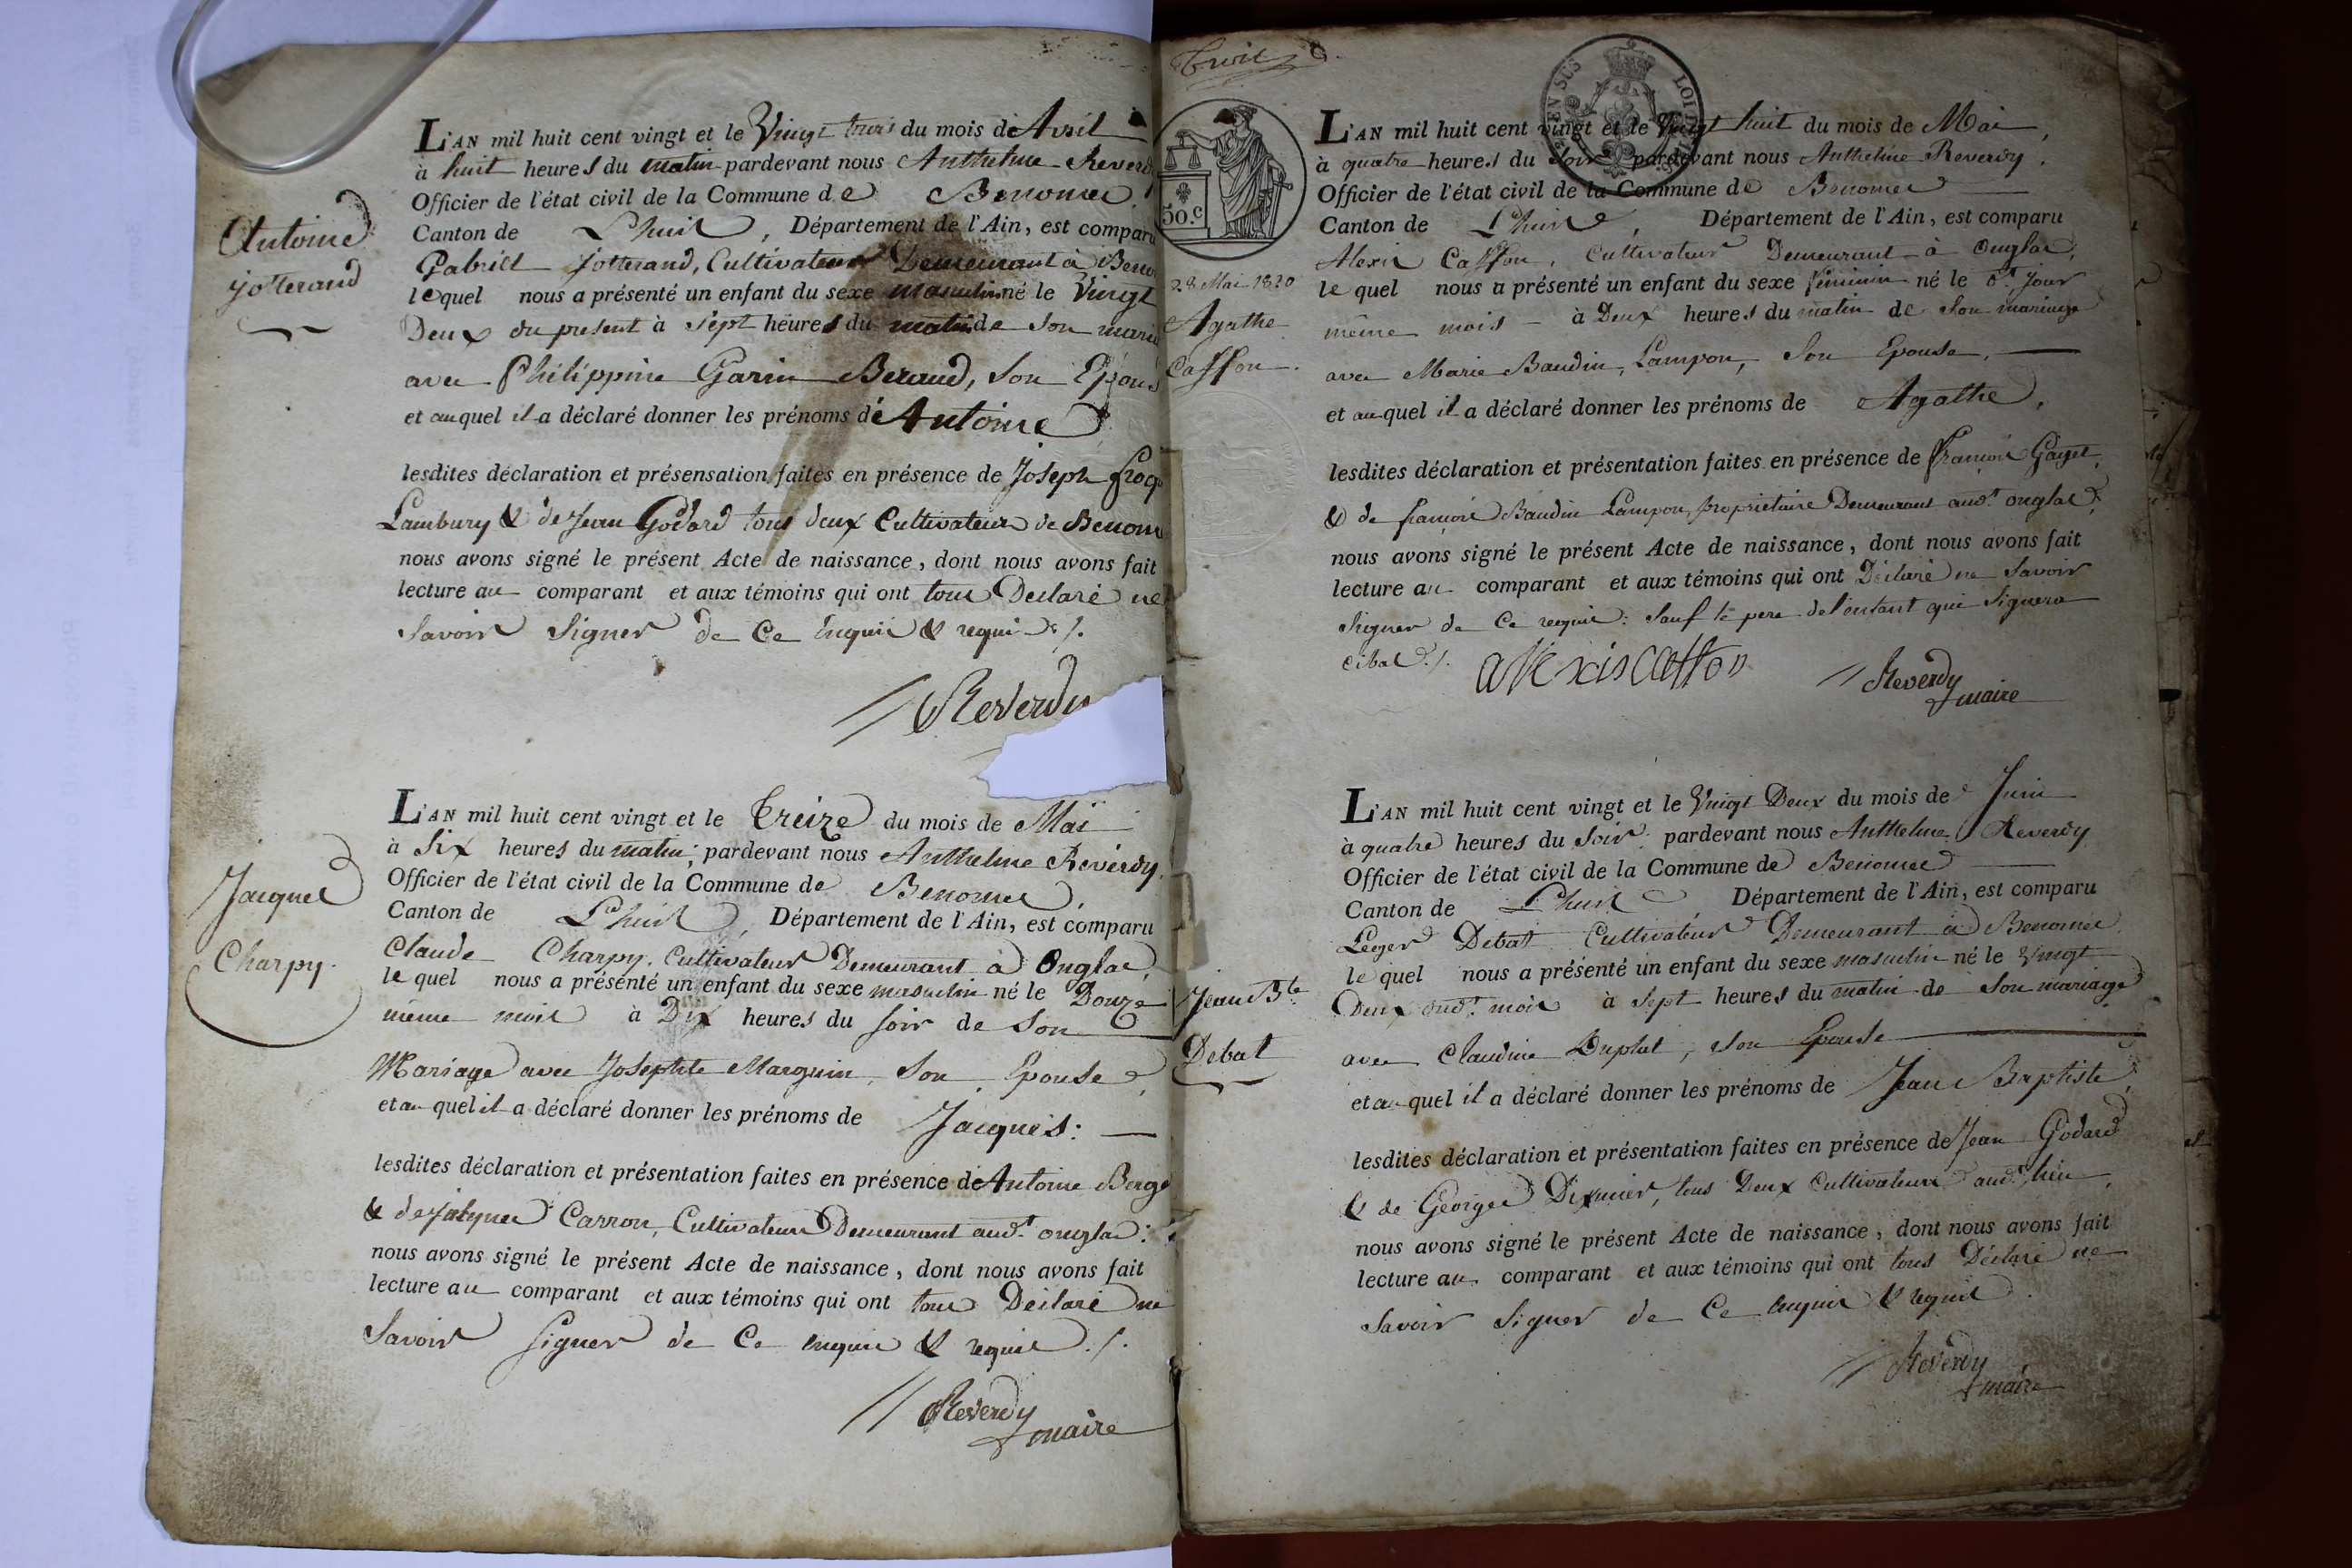 Antoine
jotterand
L'AN mil huit cent vingt et le Vingt trois du mois de Avril
à huit heures du matin pardevant nous Anthelme Reverdy
Officier de l'état civil de la Commune de Benonce
Canton de Lhuis, Département de l'Ain, est comparu
Gabriel Jotterand, Cultivateur Demeurant à Beno
lequel nous a présenté un enfant du sexe masculin né le Vingt
Deux du present à Sept heures du matin de Son maria
avec Philippine Garin Beraud, Son Epous
et auquel il a déclaré donner les prénoms de Antoine
lesdites déclaration et présensation faites en présence de Joseph
Lambury & de Jean Godard tous deux Cultivateurs de Benon
nous avons signé le présent Acte de naissance, dont nous avons fait
lecture au comparant et aux témoins qui ont tous Declaré ne
Savoir Signer de Ce Enquis & requis ./.
Reverdy
Jacques
Charpy.
L'AN mil huit cent vingt et le Treize du mois de Mai
à Six heures du matin; pardevant nous Anthelme Reverdy,
Officier de l'état civil de la Commune de Benonce,
Canton de Lhuis, Département de l'Ain, est comparu
Claude Charpy, Cultivateur Demeurant à Onglas,
le quel nous a présenté un enfant du sexe masculin né le Douze
même mois à Dix heures du soir de Son
Mariage avec Josephte Marguin, Son Epouse,
et au quel il a déclaré donner les prénoms de Jacques: —
lesdites déclaration et présentation faites en présence de Antoine Berge
& de jacques Carron, Cultivateurs Demeurant aud.t onglas:
nous avons signé le présent Acte de naissance, dont nous avons fait
lecture au comparant et aux témoins qui ont tous Déclaré ne
Savoir Signer de Ce enquis & requis ./.
Reverdy
maire
Trois
50.C
EN SUS
LOI DE
28 Mai 1820
Agathe
Caffon.
L'AN mil huit cent vingt et le Vingt huit du mois de Mai,
à quatre heures du Soir pardevant nous Anthelme Reverdy,
Officier de l'état civil de la Commune de Benonce —
Canton de Lhuis, Département de l'Ain, est comparu
Alexis Caffon, Cultivateur Demeurant à Onglas,
le quel nous a présenté un enfant du sexe feminin né le d.t jour
même mois à Deux heures du matin de Son mariage
avec Marie Baudin, Lampon, Son Epouse, —
et au quel il a déclaré donner les prénoms de Agathe,
lesdites déclaration et présentation faites en présence de françois Gayet,
& de françois Baudin Lampon, proprietaire Demeurant aud.t onglas,
nous avons signé le présent Acte de naissance, dont nous avons fait
lecture au comparant et aux témoins qui ont Déclaré ne Savoir
Signer de Ce requis: Sauf le pere de l'enfant qui Signera
cibas ./.
alexis caffon
Reverdy
maire
Jean B.te
Debat
L'AN mil huit cent vingt et le Vingt Deux du mois de Juin
à quatre heures du Soir. pardevant nous Anthelme Reverdy
Officier de l'état civil de la Commune de Benonce —
Canton de Lhuis, Département de l'Ain, est comparu
Leger Debat Cultivateur Demeurant à Benonce,
le quel nous a présenté un enfant du sexe masculin né le Vingt
Deux dud.t mois à Sept heures du matin de Son mariage
avec Claudine Duplat, Son Epouse —
et au quel il a déclaré donner les prénoms de Jean Baptiste,
lesdites déclaration et présentation faites en présence de Jean Godard
& de George Dixmier, tous Deux Cultivateurs aud.t lieu,
nous avons signé le présent Acte de naissance, dont nous avons fait
lecture au comparant et aux témoins qui ont tous Déclaré ne
Savoir Signer de Ce enquis & requis.
Reverdy
maire